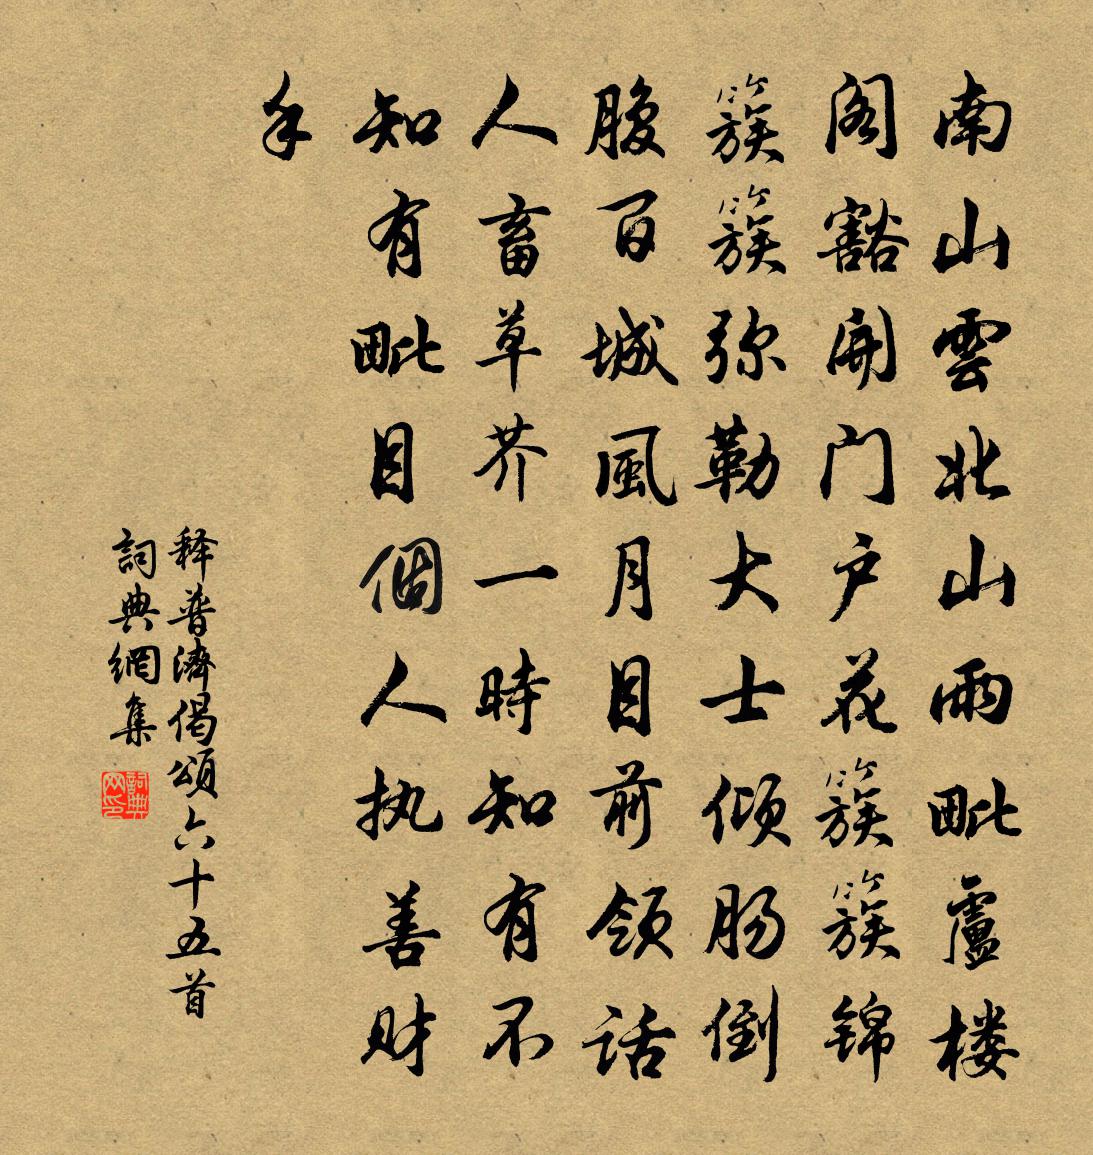 南山雲北山雨毗盧楼
阁豁開门户花簇簇锦
簇簇弥勒大士倾肠倒
腹百城風月目前领话
人畜草芥一時知有不
知有毗目個人执善财
手
释普濟偈頌六十五首
詞典網集
詞典网印